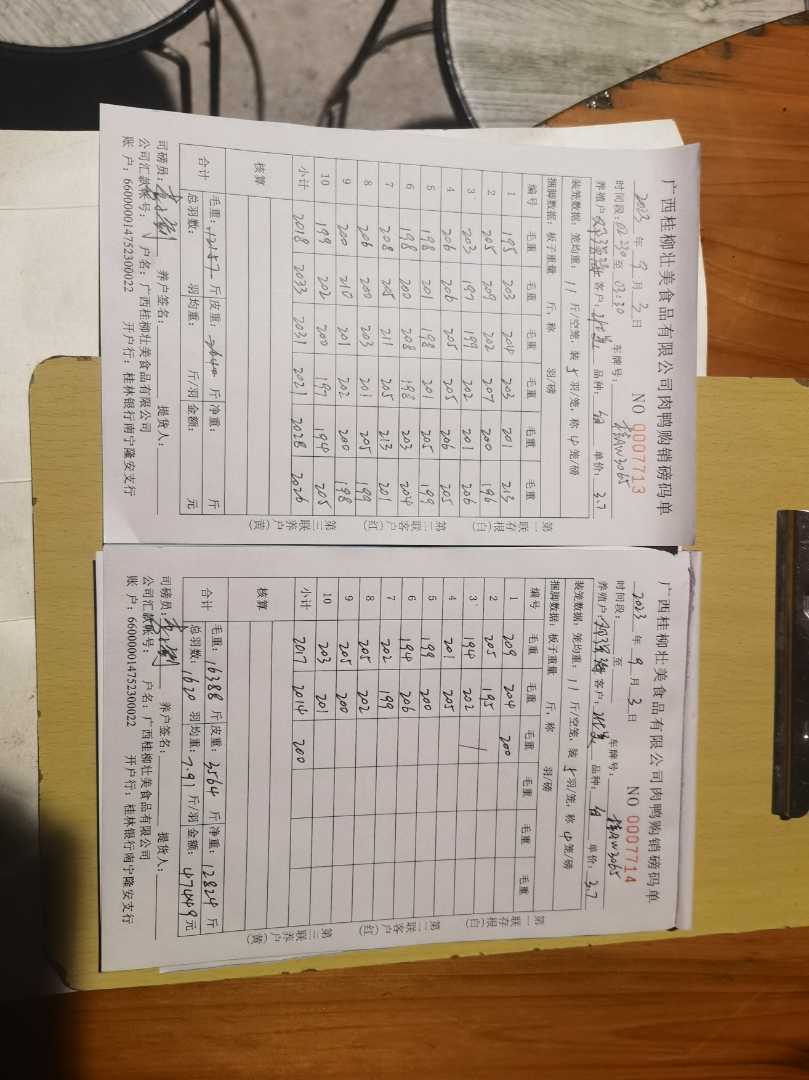 广西桂柳壮美食品有限公司肉鸭购销磅码单
2023 年 9 月 3 日 NO 0007713
时间段: 02:30 至 03:30 车牌号: 桂AW3065
养殖户: 客户: 品种: 单价: 3.7
装笼数据: 笼均重: 11 斤/空笼, 装 5 羽/笼, 称 4 笼/磅
捆脚数据: 板子重量 斤, 称 羽/磅
编号 毛重 毛重 毛重 毛重 毛重 毛重
1 195 203 204 203 201 213
2 205 209 202 207 200 196
3 203 197 199 202 201 206
4 206 206 205 205 206 205
5 198 201 198 201 205 199
6 198 200 208 198 203 204
7 208 205 211 205 213 201
8 206 200 203 201 205 199
9 200 210 201 202 200 198
10 199 202 200 197 194 205
小计 2018 2033 2031 2021 2028 2026
核算
合计 毛重: 12157 斤 皮重: 2640 斤 净重: 斤
总羽数: 羽均重: 斤/羽 金额: 元
司磅员: 养户签名: 提货人:
公司汇款帐号: 户名: 广西桂柳壮美食品有限公司
账 户: 660000014752300022 开户行: 桂林银行南宁隆安支行
第一联存根(白) 第二联客户(红) 第三联养户(黄)
广西桂柳壮美食品有限公司肉鸭购销磅码单
2023 年 9 月 3 日 NO 0007714
时间段: 至 车牌号: 桂AW3065
养殖户: 客户: 品种: 单价: 3.7
装笼数据: 笼均重: 11 斤/空笼, 装 5 羽/笼, 称 4 笼/磅
捆脚数据: 板子重量 斤, 称 羽/磅
编号 毛重 毛重 毛重 毛重 毛重 毛重
1 209 204 200
2 205 195
3 194 202 /
4 201 205
5 199 200
6 194 206
7 202 199
8 205 202
9 205 200
10 203 201
小计 2017 2014 200
核算
合计 毛重: 16388 斤 皮重: 3564 斤 净重: 12824 斤
总羽数: 1620 羽均重: 7.91 斤/羽 金额: 47449 元
司磅员: 养户签名: 提货人:
公司汇款帐号: 户名: 广西桂柳壮美食品有限公司
账 户: 660000014752300022 开户行: 桂林银行南宁隆安支行
第一联存根(白) 第二联客户(红) 第三联养户(黄)